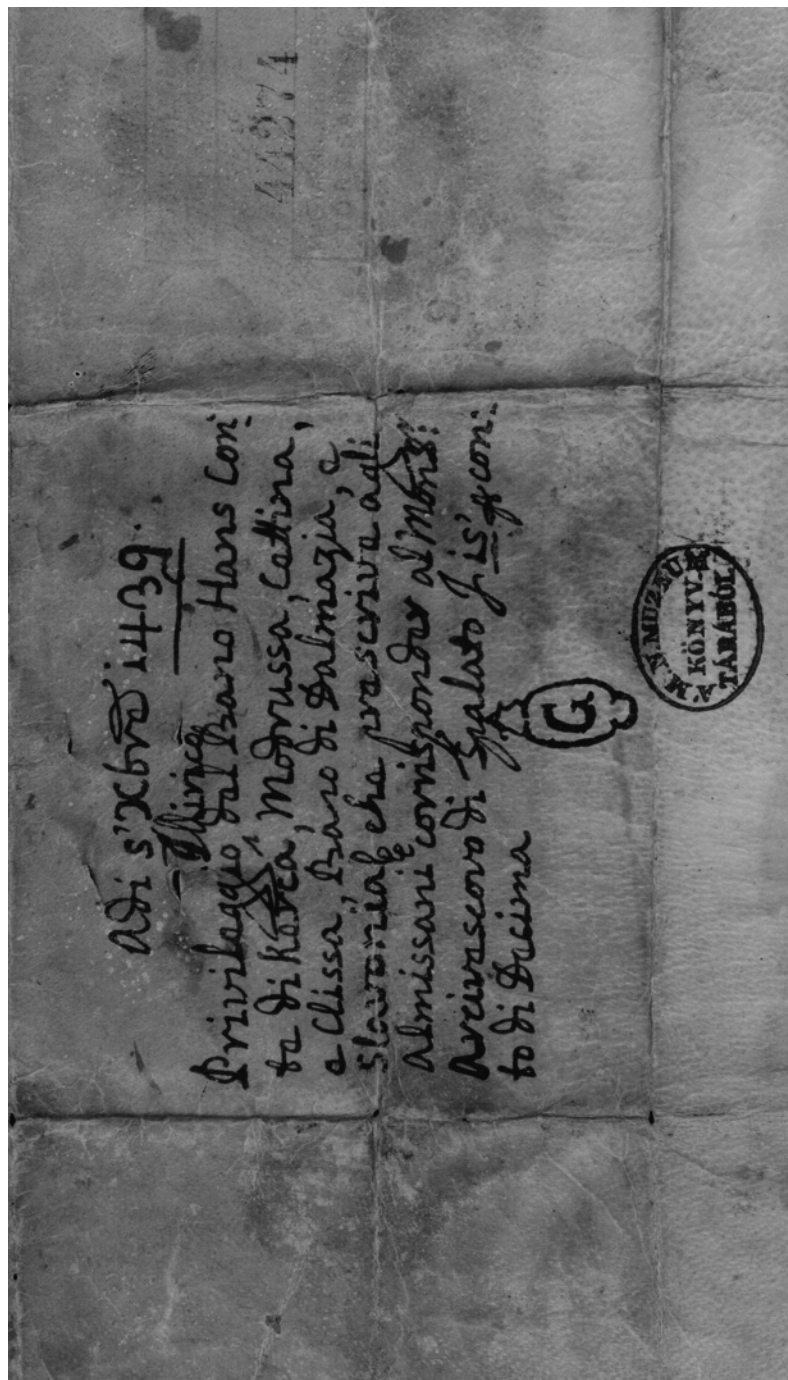 44274
Adi 5 Xbrẽ 1439.
Privileggio dal Bano Hans Con:
te di Kerca, Modrussa, Cettina,
e Clissa, Bano di Dalmazia, e
Slavonia che prescrive agli
Almissani corrisponder al Mons:r
Arcivescovo di Spalato is' con:
to di Decima
G
A. M. N. MUZEUM
KÖNYV-
TÁRÁBÓL